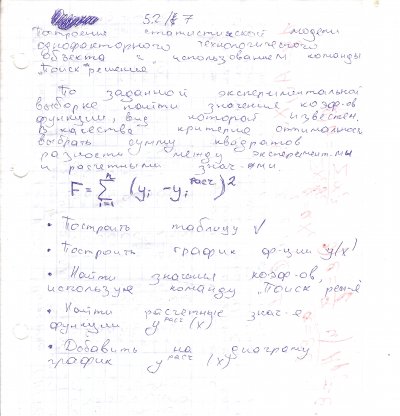 5.2 / 7
Построение статистической модели
однофакторного технологического
объекта с использованием команды
"Поиск решения"
По заданной экспериментальной
выборке найти значения коэф-ов
функции, вид которой известен.
В качестве критерия оптимальнос
выбрать сумму квадратов
разности между эксперемент-ми
и расчетными знач-ями
F = ∑ⁿᵢ₌₁ (yᵢ - yᵢ расч)²
• Построить таблицу √
• Построить график ф-ции y(x)
• Найти значения коэф-ов,
используя команду "Поиск реш-я
• Найти расчетные знач-я
функции y расч (x)
• Добавить на диаграму
график y расч (x)